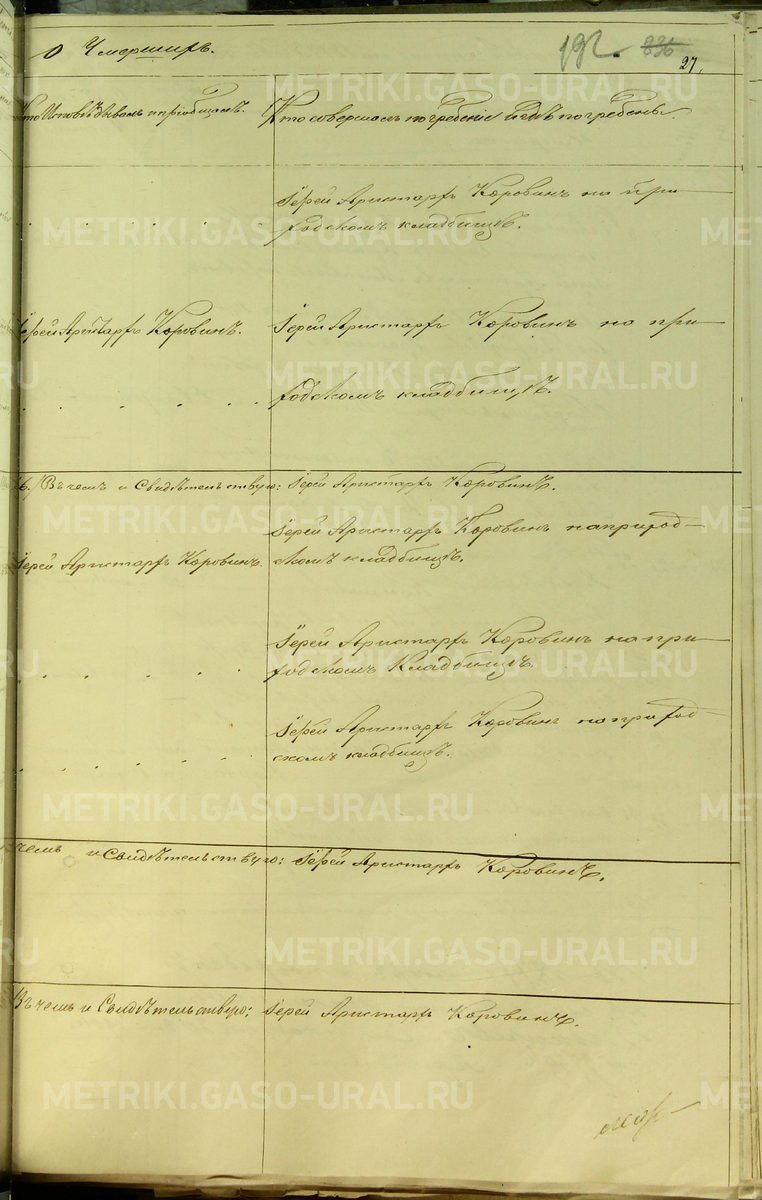 О Умершихъ.
192. 336
27.
Кто Исповѣдывалъ и пріобщалъ.
Кто совершалъ погребеніе и гдѣ погребены.
Іерей Аристархъ Коровинъ на при-
ходскомъ кладбищѣ.
Іерей Аристархъ Коровинъ. Іерей Аристархъ Коровинъ на при-
ходскомъ кладбищѣ.
Въ чемъ и Свидѣтельствую: Іерей Аристархъ Коровинъ.
Іерей Аристархъ Коровинъ на приход-
Іерей Аристархъ Коровинъ. скомъ кладбищѣ.
Іерей Аристархъ Коровинъ на при-
ходскомъ Кладбищѣ.
Іерей Аристархъ Коровинъ на приход-
скомъ кладбищѣ.
чемъ и Свидѣтельствую: Іерей Аристархъ Коровинъ.
Въ чемъ и Свидѣтельствую: Іерей Аристархъ Коровинъ.
METRIKI.GASO-URAL.RU